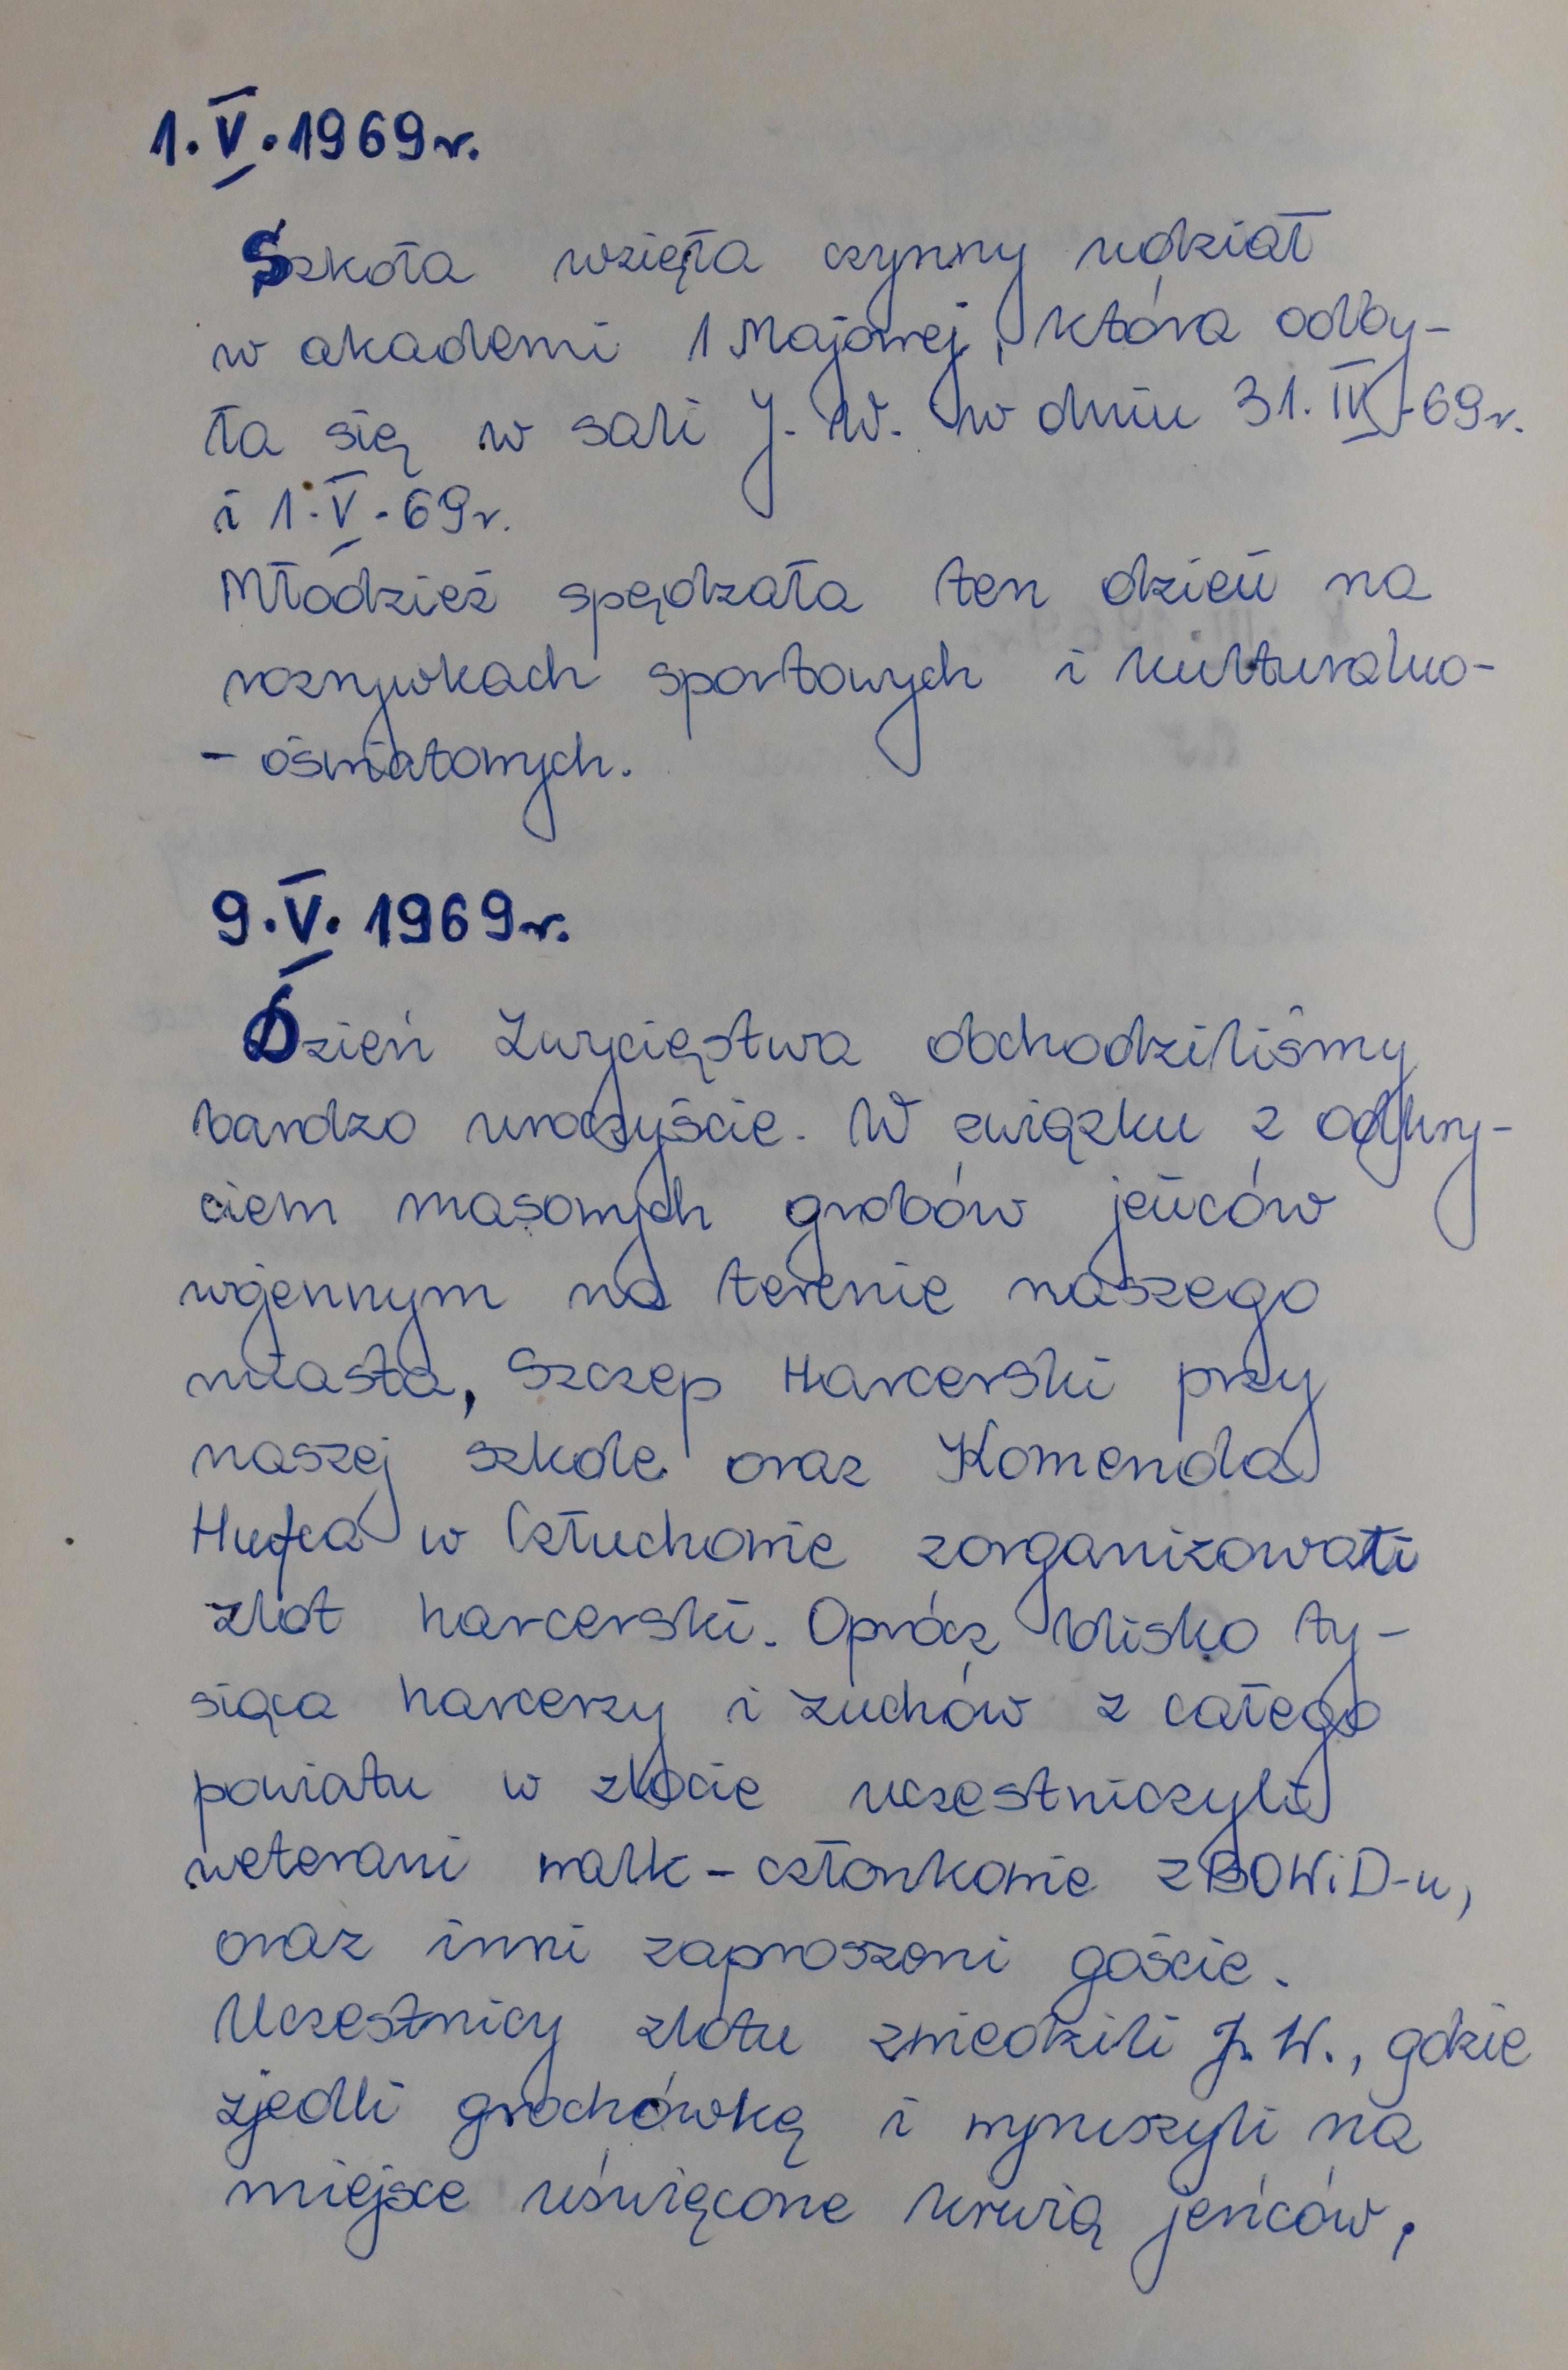 1.V.1969r.
Szkoła wzięła czynny udział
w akademi 1 Majowej, która odby-
ła się w sali J. W. w dniu 31.IV.69r.
i 1.V.69r.
Młodzież spędzała ten dzień na
rozrywkach sportowych i kulturalno-
- oświatowych.
9.V.1969r.
Dzień Zwycięstwa obchodziliśmy
bardzo uroczyście. W związku z odkry-
ciem masowych grobów jeńców
wojennym na terenie naszego
miasta, Szczep Harcerski przy
naszej szkole oraz Komenda
Hufca w Człuchowie zorganizowali
zlot harcerski. Oprócz blisko ty-
siąca harcerzy i zuchów z całego
powiatu w zlocie uczestniczyli
weterani walk - członkowie ZBOWiD-u,
oraz inni zaproszeni goście.
Uczestnicy zlotu zwiedzili J. W., gdzie
zjedli grochówkę i wyruszyli na
miejsce uświęcone krwią jeńców,